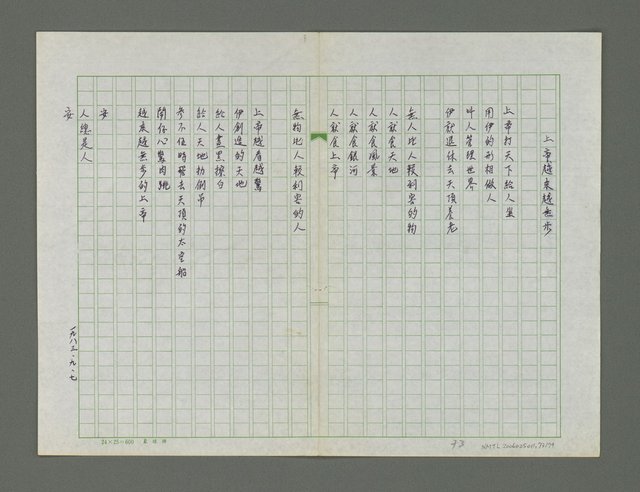 上帝越來越無步
上帝打天下給人坐
用伊的形相做人
叫人管理世界
伊就退休去天頂養老
無人比人較利害的物
人就食天地
人就食風景
人就食銀河
人就食上帝
無物比人較利害的人
上帝越看越驚
伊創造的天地
給人畫黑擦白
給人天地拍倒吊
參不住時飛去天頂的太空船
閣伓心驚肉跳
越來越無步的上帝
安
人總是人
安
一九八三·九·七
24×25=600